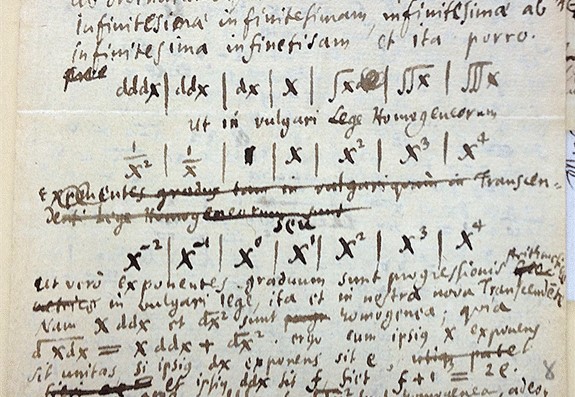 infinitesima infinitesimam, infinitesima ab
infinitesima infinitisam et ita porro.
dddx | ddx | dx | x | ∫x | ∫∫x | ∫∫∫x
ut in vulgari Lege Homogeneorum
1/x² | 1/x | 1 | x | x² | x³ | x⁴
Exponentes gradus tam in vulgari quam in Transcen=
denti lege Homogeneorum sunt
seu
x⁻² | x⁻¹ | x⁰ | x¹ | x² | x³ | x⁴
Ut verò exponentes graduum sunt progressionis Arithme
in vulgari lege, ita et in nostra nova Transcendente
Nam x ddx et dx² sunt homogenea; quia
d xdx = x ddx + dx². ergo cum ipsius x exponens
sit unitas, si ipsius dx exponens sit e,
et ipsius ddx sit f, fiet f + 1 = 2e.
8